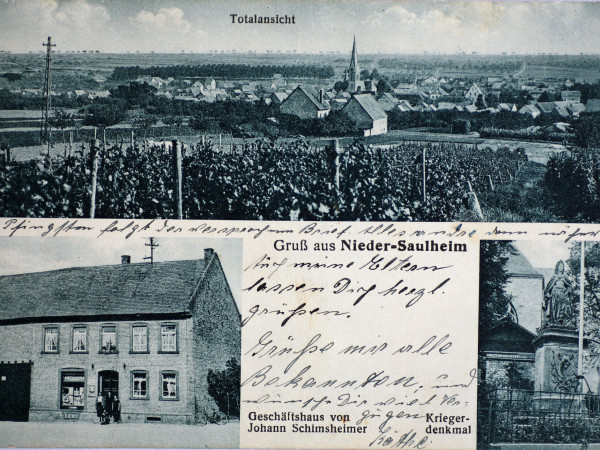 Totalansicht
Pfingsten folgt der versprochene Brief. Alles andre dann näher
Gruß aus Nieder-Saulheim
Auch meine Eltern
lassen Dich herzl.
grüßen.
Grüße mir alle
Bekannten und
wünsche Dir viel Ver-
gnügen
Käthe
Geschäftshaus von
Johann Schimsheimer
Krieger-
denkmal